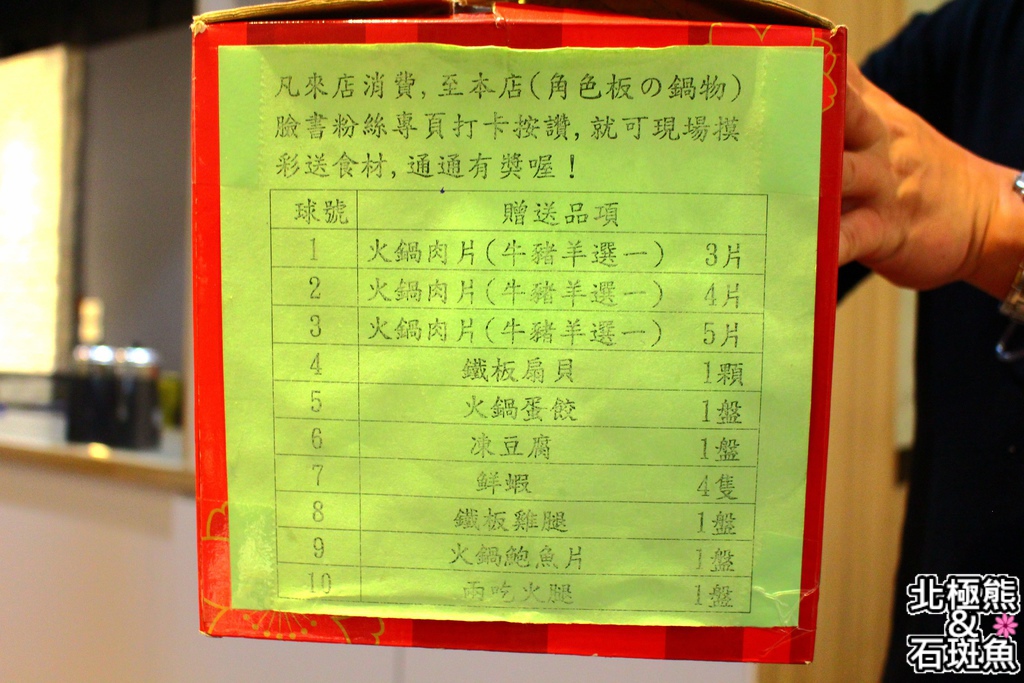 凡來店消費, 至本店(角色板の鍋物)
臉書粉絲專頁打卡按讚, 就可現場摸
彩送食材, 通通有獎喔!
球號 贈送品項
1 火鍋肉片(牛豬羊選一) 3片
2 火鍋肉片(牛豬羊選一) 4片
3 火鍋肉片(牛豬羊選一) 5片
4 鐵板扇貝 1顆
5 火鍋蛋餃 1盤
6 凍豆腐 1盤
7 鮮蝦 4隻
8 鐵板雞腿 1盤
9 火鍋鮑魚片 1盤
10 兩吃火腿 1盤
北極熊
&
石斑魚